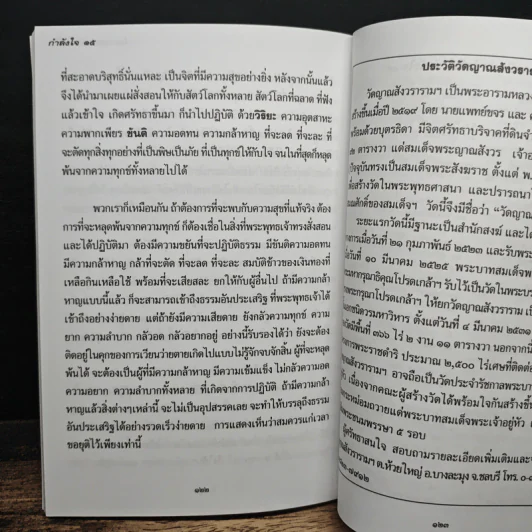 กำลังใจ ๑๕
ที่สะอาดบริสุทธิ์นั่นแหละ เป็นจิตที่มีความสุขอย่างยิ่ง หลังจากนั้นแล้ว
จึงได้นำมาเผยแผ่สั่งสอนให้กับสัตว์โลกทั้งหลาย สัตว์โลกที่ฉลาด ที่ฟัง
แล้วเข้าใจ เกิดศรัทธาขึ้นมา ก็นำไปปฏิบัติ ด้วยวิริยะ ความอุตสาหะ
ความพากเพียร ขันติ ความอดทน ความกล้าหาญ ที่จะลด ที่จะละ ที่
จะตัดทุกสิ่งทุกอย่างที่เป็นพิษเป็นภัย ที่เป็นทุกข์ให้กับใจ จนในที่สุดก็หลุด
พ้นจากความทุกข์ทั้งหลายไปได้
พวกเราก็เหมือนกัน ถ้าต้องการที่จะพบกับความสุขที่แท้จริง ต้อง
การที่จะหลุดพ้นจากความทุกข์ ก็ต้องเชื่อในสิ่งที่พระพุทธเจ้าทรงสั่งสอน
และได้ปฏิบัติมา ต้องมีความขยันที่จะปฏิบัติธรรม มีขันติความอดทน
มีความกล้าหาญ กล้าที่จะตัด ที่จะลด ที่จะละ สมบัติข้าวของเงินทองที่
เหลือกินเหลือใช้ พร้อมที่จะเสียสละ ยกให้กับผู้อื่นไป ถ้ามีความกล้า
หาญแบบนี้แล้ว ก็จะสามารถเข้าถึงธรรมอันประเสริฐ ที่พระพุทธเจ้าได้
เข้าถึงอย่างง่ายดาย แต่ถ้ายังมีความเสียดาย ยังกลัวความทุกข์ ความ
ยาก ความลำบาก กลัวอด กลัวอยากอยู่ อย่างนี้รับรองได้ว่า ยังจะต้อง
ติดอยู่ในคุกของการเวียนว่ายตายเกิดไปแบบไม่รู้จักจบจักสิ้น ผู้ที่จะหลุด
พ้นได้ จะต้องเป็นผู้ที่มีความกล้าหาญ มีความเข้มแข็ง ไม่กลัวความอด
ความอยาก ความลำบากทั้งหลาย ที่เกิดจากการปฏิบัติ ถ้ามีความกล้า
หาญแล้วสิ่งต่างๆเหล่านี้ จะไม่เป็นอุปสรรคเลย จะทำให้บรรลุถึงธรรม
อันประเสริฐได้อย่างรวดเร็วง่ายดาย การแสดงเห็นว่าสมควรแก่เวลา
ขอยุติไว้เพียงเท่านี้
๑๒๒
ประวัติวัดญาณสังวราราม
วัดญาณสังวรารามฯ เป็นพระอารามหลวง
สร้างขึ้นเมื่อปี ๒๕๑๙ โดย นายแพทย์ขจร และ
พร้อมด้วยบุตรธิดา มีจิตศรัทธาบริจาคที่ดิน
๒ ตารางวา แด่สมเด็จพระญาณสังวร เจ้า
ปัจจุบันทรงเป็นสมเด็จพระสังฆราช ตั้งแต่ พ.
เพื่อสร้างวัดในพระพุทธศาสนา และปรารถนา
สมณศักดิ์ของสมเด็จฯ วัดนี้จึงมีชื่อว่า “วัดญาณ
ระยะแรกวัดนี้มีฐานะเป็นสำนักสงฆ์ และได้
การเมื่อวันที่ ๒๑ กุมภาพันธ์ ๒๕๒๓ และรับพระ
เมื่อวันที่ ๑๐ มีนาคม ๒๕๒๕ พระบาทสมเด็จพระ
พระมหากรุณาธิคุณโปรดเกล้าฯ รับไว้เป็นวัดในพระบรม
พระกรุณาโปรดเกล้าฯ ให้ยกวัดญาณสังวราราม เป็น
เอกชนิดวรมหาวิหาร ตั้งแต่วันที่ ๔ มีนาคม ๒๕๓๑
วัดพื้นที่ ๓๖๖ ไร่ ๒ งาน ๑๑ ตารางวา นอกจากนี้
การพระราชดำริ ประมาณ ๒,๕๐๐ ไร่เศษที่ติดต่อ
สังวรารามฯ อาจถือเป็นวัดประจำรัชกาลพระบาท
เนื่องจากคณะผู้สร้างวัดได้พร้อมใจกันสร้างขึ้น
น้อมถวายแด่พระบาทสมเด็จพระเจ้าอยู่หัว
พระชนมพรรษา ๕ รอบ
ผู้ศรัทธาสนใจ สอบถามรายละเอียดเพิ่มเติมและ
สังวรารามฯ ต.ห้วยใหญ่ อ.บางละมุง จ.ชลบุรี โทร. ๐-
๑๒๓